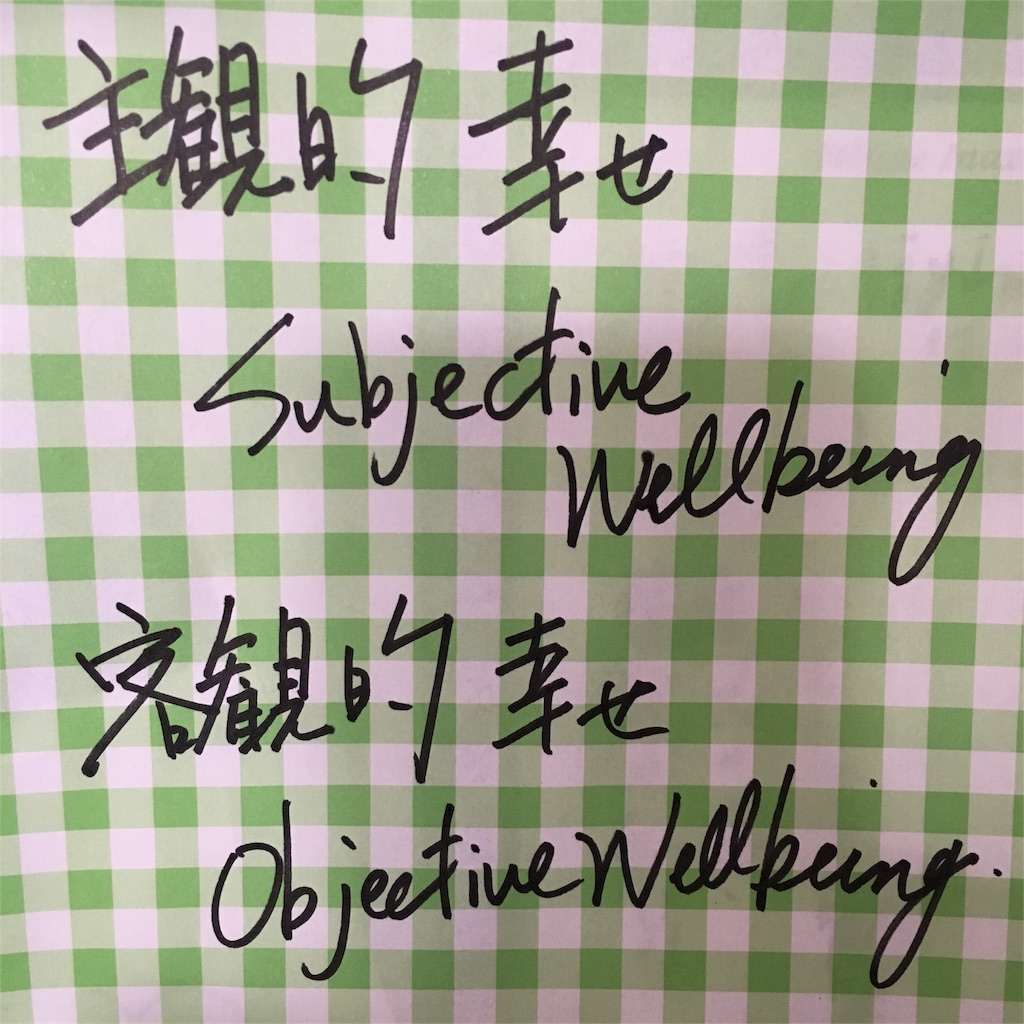 主観的幸せ
Subjective
Wellbeing
客観的幸せ
Objective Wellbeing.